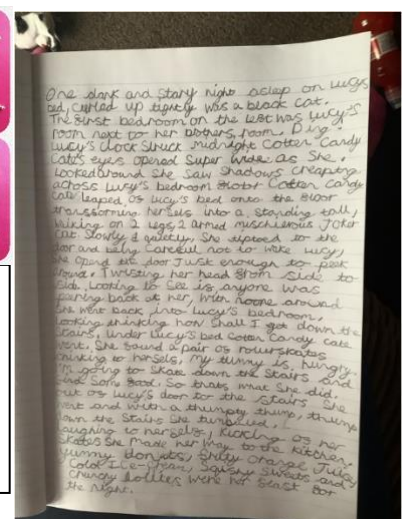 One dark and stary night asleep on Lucys
bed, curled up tightly was a black cat.
The first bedroom on the left was Lucy's
room next to her brothers, room. Ding.
Lucy's clock struck midnight Cotten Candy
Cate's eyes opened super wide as She.
Looked around She saw Shadows creaping
across Lucy's bedroom floor Cotten Candy
cate leaped, of Lucy's bed onto the floor
transforming herself into a, standing tall,
walking on 2 legs, 2 armed mischievous Joker
Cat. Slowly & quietly, She tiptoed to the
door and being careful not to wake Lucy,
She opend the door Just enough to peek
around. Twisting her head from side to
side, Looking to see is anyone was
pering back at her, with noone around
She went back into Lucy's bedroom,
Looking thinking how shall I get down the
stairs, under Lucy's bed Cotten Candy cate
went. She found a pair of rollerskates
thinking to herself, my tummy is, hungry.
I'm going to skate down the stairs and
find some food. So thats what She did.
out of Lucy's door to the stairs She
went and with a thumpty thump, thump
down the stairs She tumbled.
Laughing to herself, Kicking of her
skates She made her way to the kitchen,
yummy donuts, fruity orange Juicy
Cold ICe-Cream, Squishy Sweets and
Chuncy Lollies were her feast for
the night.